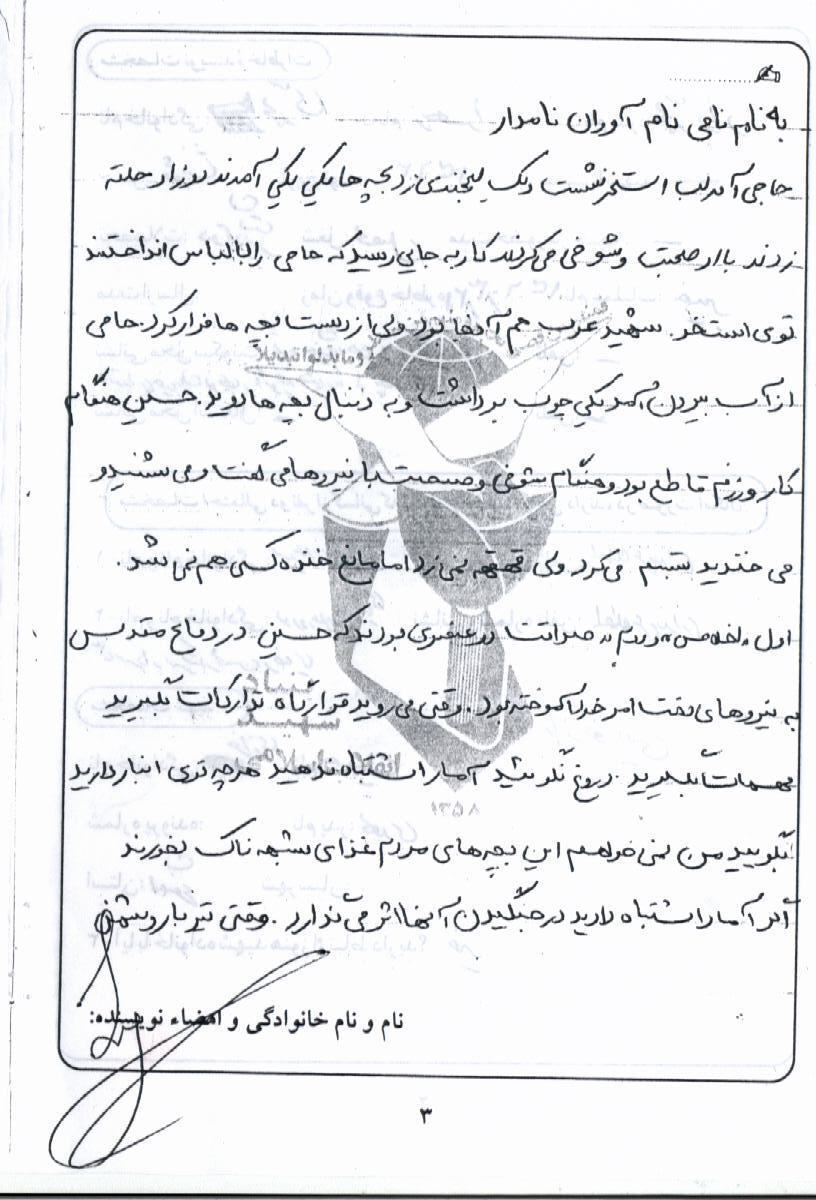 به نام نامی نام آوران نامدار
حاجی آمد لب استخر نشست و یک لبخندی زد بچه ها یکی یکی آمدند دور او حلقه
زدند با او صحبت و شوخی می کردند کار به جایی رسید که حاجی را با لباس انداختند
توی استخر. شهید عرب هم آنجا بود ولی از دست بچه ها فرار کرد. حاجی
از آب بیرون آمد یکی چوب برداشت و به دنبال بچه ها دوید. حسین هنگام
کار و رزم قاطع بود و هنگام شوخی و صحبت با نیروها می گفت و می شنید و
می خندید تبسم می کرد ولی قهقهه نمی زد اما مانع خنده کسی هم نمی شد.
اول «اخلاص» و دوم «صداقت» دو عنصری بودند که حسین در دفاع مقدس
به نیروهای تحت امر خود آموخته بود. وقتی می روید قرارگاه تدارکات بگیرید
مهمات بگیرید. دروغ نگوئید آمار اشتباه ندهید هرچه توی انبار دارید
بگویید من نمی خواهم این بچه های مردم غذای شبهه ناک بخورند
اگر آمار اشتباه دادید در جنگیدن آنها اثر می گذارد. وقتی تیربار دشمن
نام و نام خانوادگی و امضاء نویسنده:
۳